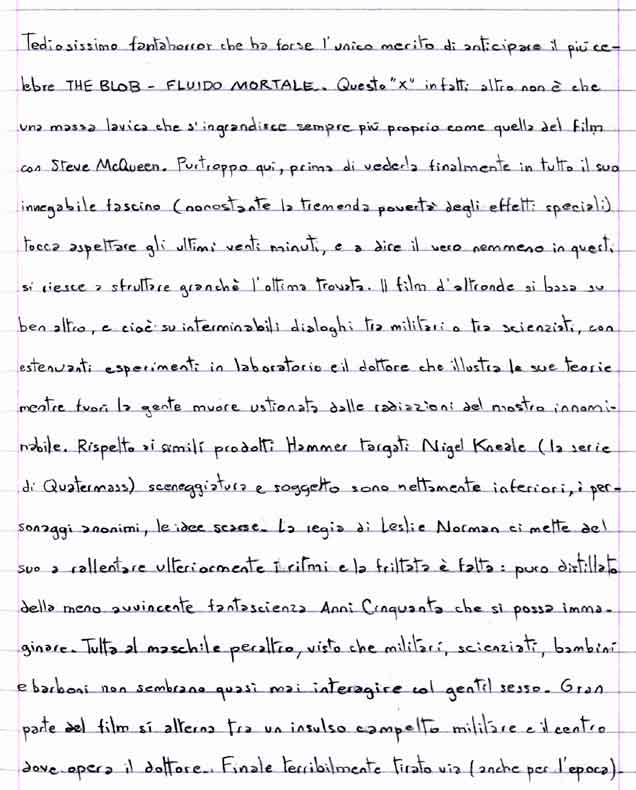 Tediosissimo fantahorror che ha forse l'unico merito di anticipare il più ce-
lebre THE BLOB - FLUIDO MORTALE. Questo "X" infatti altro non è che
una massa lavica che s'ingrandisce sempre più proprio come quella del film
con Steve McQueen. Purtroppo qui, prima di vederla finalmente in tutto il suo
innegabile fascino (nonostante la tremenda povertà degli effetti speciali)
tocca aspettare gli ultimi venti minuti, e a dire il vero nemmeno in questi
si riesce a sfruttare granchè l'ottima trovata. Il film d'altronde si basa su
ben altro, e cioè su interminabili dialoghi tra militari o tra scienziati, con
estenuanti esperimenti in laboratorio e il dottore che illustra le sue teorie
mentre fuori la gente muore ustionata dalle radiazioni del mostro innomi-
nabile. Rispetto ai simili prodotti Hammer targati Nigel Kneale (la serie
di Quatermass) sceneggiatura e soggetto sono nettamente inferiori, i per-
sonaggi anonimi, le idee scarse. La regia di Leslie Norman ci mette del
suo a rallentare ulteriormente i ritmi e la frittata è fatta: puro distillato
della meno avvincente fantascienza Anni Cinquanta che si possa imma-
ginare. Tutta al maschile peraltro, visto che militari, scienziati, bambini
e barboni non sembrano quasi mai interagire col gentil sesso. Gran
parte del film si alterna tra un insulso campetto militare e il centro
dove opera il dottore. Finale terribilmente tirato via (anche per l'epoca).